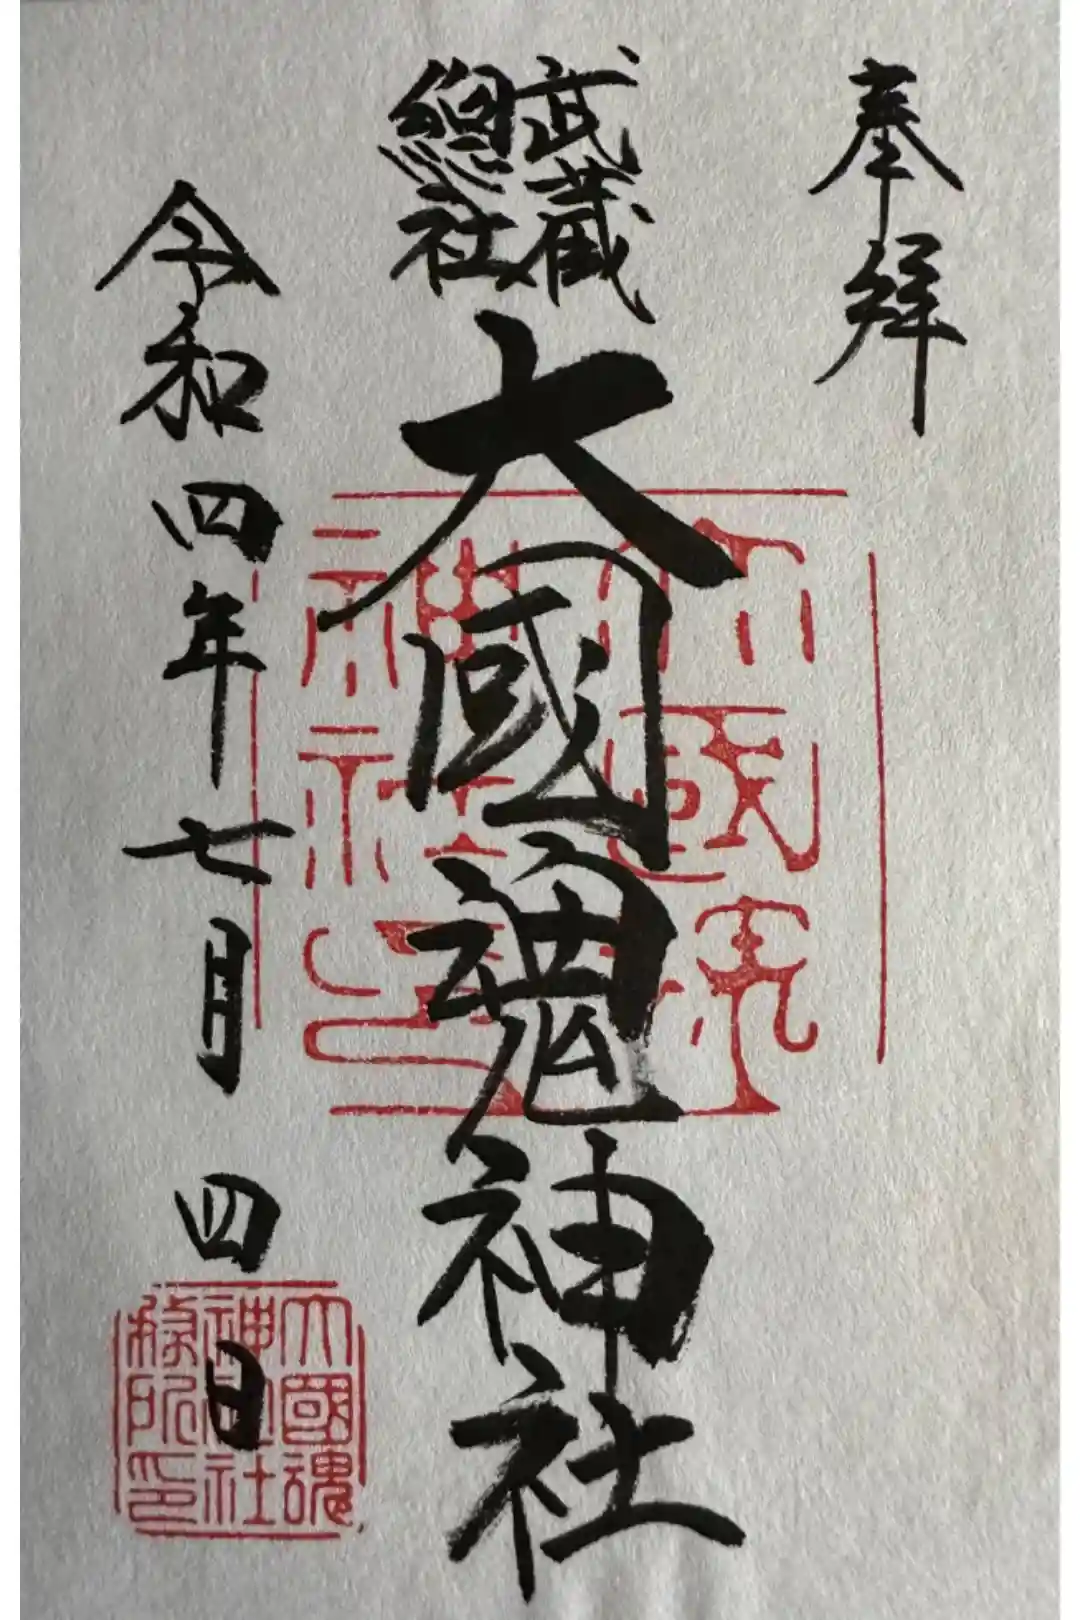 奉拝
武蔵
總社
大國魂神社
令和四年七月四日
大國魂
神社之印
大國魂
神社社
務所印